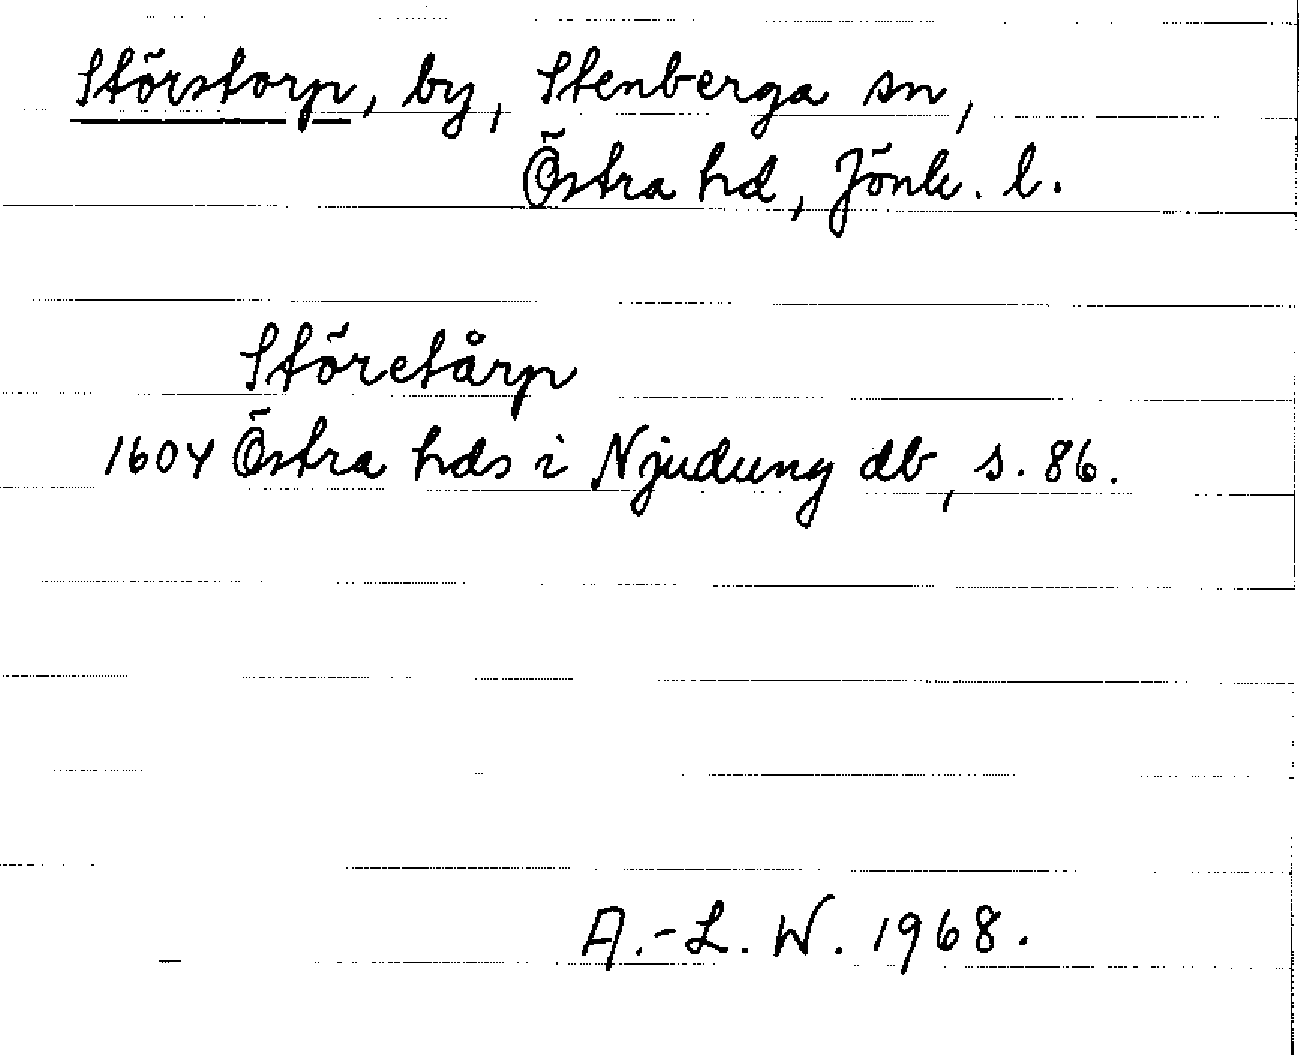 Störstorp, by, Stenberga sn,
Östra hd, Jönk. l.
Störetårp
1604 Östra hds i Njudung db, s. 86.
A.-L. W. 1968.